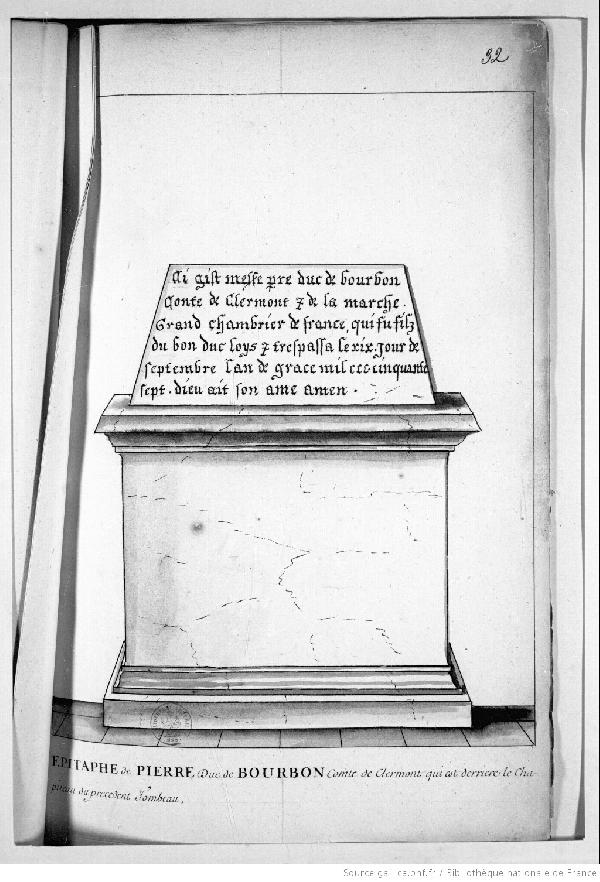 32
Ci gist messe pre duc de bourbon
Conte de Clermont & de la marche.
Grand chambrier de france, qui fu filz
du bon duc loys & trespassa le xix. jour de
septembre lan de grace mil ccc cinquante
sept. dieu ait son ame amen.
EPITAPHE de PIERRE Duc de BOURBON Comte de Clermont qui est derriere le Cha-
piteau du precedent Tombeau,
Source gallica.bnf.fr / Bibliothèque nationale de France